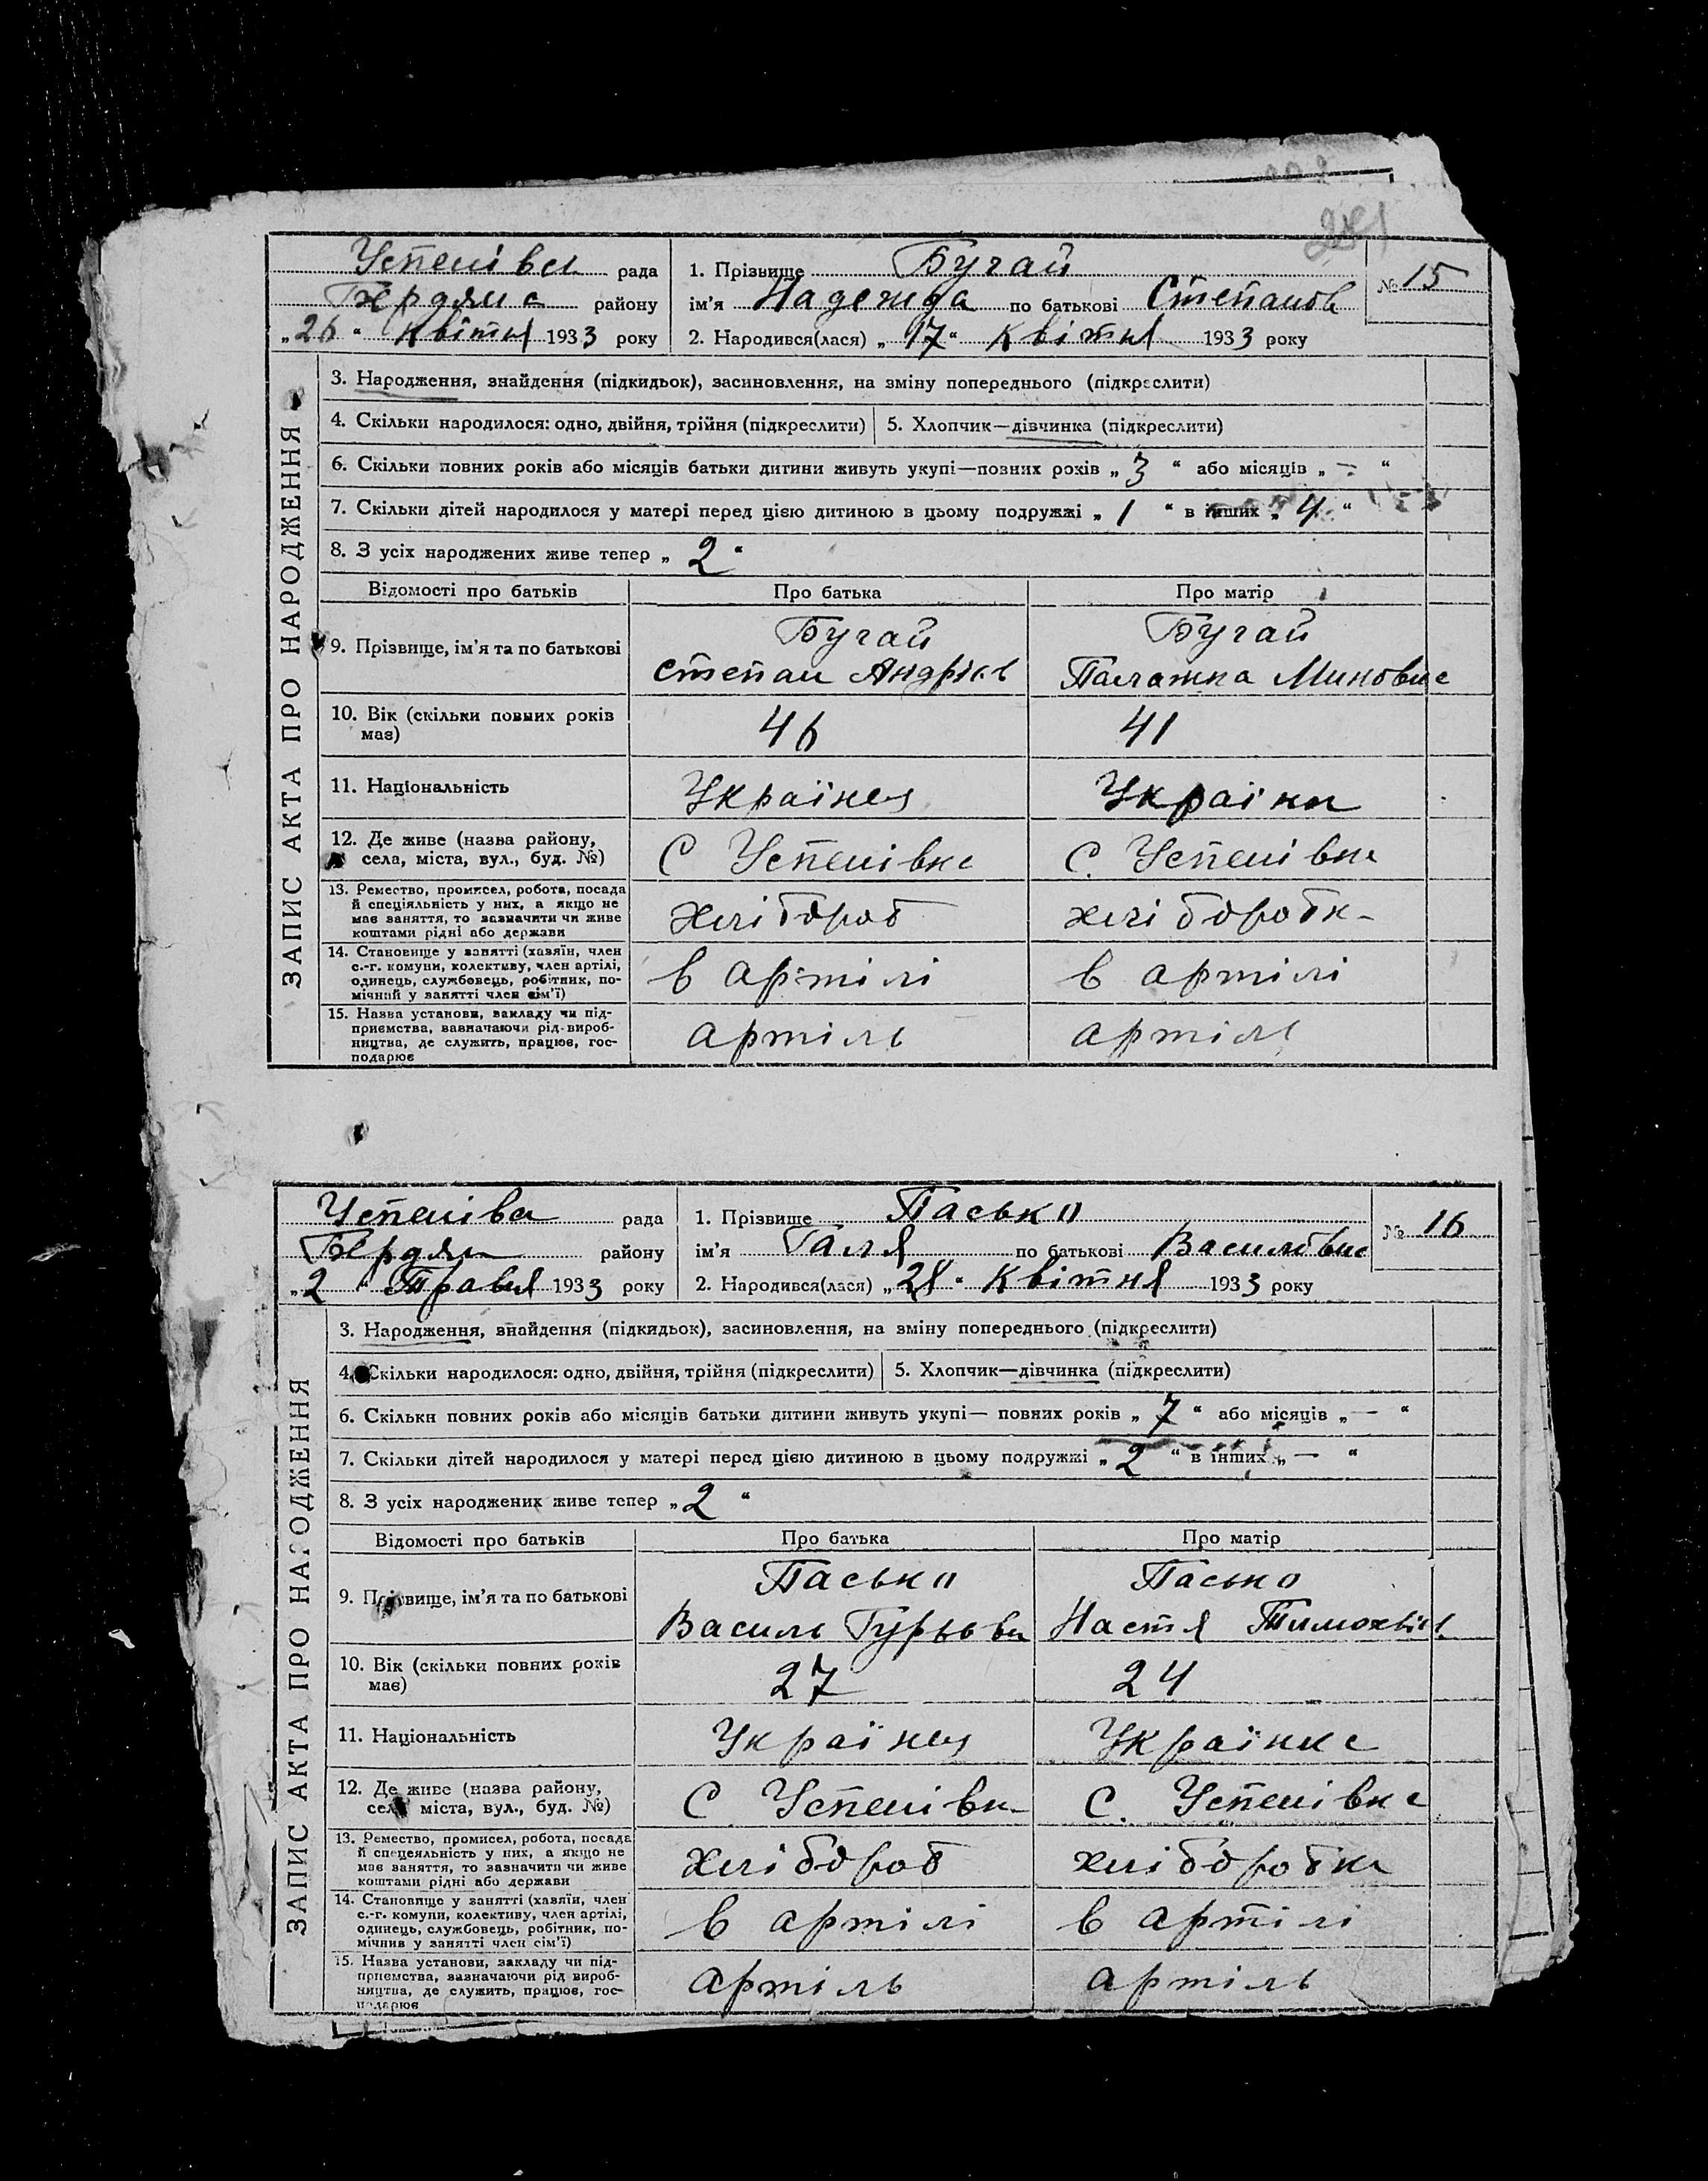 Успенівсь рада
Бердянс району
„26“ Квітня 1933 року
1. Прізвище Бугай
ім'я Надежда по батькові Степанов
2. Народився(лася) „17“ Квітня 1933 року
№ 15
ЗАПИС АКТА ПРО НАРОДЖЕННЯ
3. Народження, знайдення (підкидьок), засиновлення, на зміну попереднього (підкреслити)
4. Скільки народилося: одно, двійня, трійня (підкреслити)
5. Хлопчик—дівчинка (підкреслити)
6. Скільки повних років або місяців батьки дитини живуть укупі—повних років „3“ або місяців „—“
7. Скільки дітей народилося у матері перед цією дитиною в цьому подружжі „1“ в інших „4“
8. З усіх народжених живе тепер „2“
Відомості про батьків
Про батька
Про матір
9. Прізвище, ім'я та по батькові
Бугай
Степан Андрієв
Бугай
Палажка Миновне
10. Вік (скільки повних років
має)
46
41
11. Національність
Українец
Українк
12. Де живе (назва району,
села, міста, вул., буд. №)
С Успенівке
С. Успенівка
13. Ремество, промисел, робота, посада
й спеціяльність у них, а якщо не
має заняття, то зазначити чи живе
коштами рідні або держави
хлібороб
хліборобк
14. Становище у занятті (хазяїн, член
с.-г. комуни, колективу, член артілі,
одинець, службовець, робітник, по-
мічний у занятті член сім'ї)
в артілі
в артілі
15. Назва установи, закладу чи під-
приємства, вазначаючи рід вироб-
ництва, де служить, працює, гос-
подарює
артіль
артіль
Успенівсь рада
Бердян району
„2“ Травня 1933 року
1. Прізвище Пасько
ім'я Галя по батькові Василовне
2. Народився(лася) „28“ Квітня 1933 року
№ 16
ЗАПИС АКТА ПРО НАРОДЖЕННЯ
3. Народження, знайдення (підкидьок), засиновлення, на зміну попереднього (підкреслити)
4. Скільки народилося: одно, двійня, трійня (підкреслити)
5. Хлопчик—дівчинка (підкреслити)
6. Скільки повних років або місяців батьки дитини живуть укупі— повних років „7“ або місяців „—“
7. Скільки дітей народилося у матері перед цією дитиною в цьому подружжі „2“ в інших „—“
8. З усіх народжених живе тепер „2“
Відомості про батьків
Про батька
Про матір
9. Прізвище, ім'я та по батькові
Пасько
Василь Гурьови
Пасько
Настя
10. Вік (скільки повних років
має)
27
24
11. Національність
Українец
Українке
12. Де живе (назва району,
села міста, вул., буд. №)
С Успенівк
С. Успенівке
13. Ремество, промисел, робота, посада
й спецеяльність у них, а якщо не
має заняття, то зазначити чи живе
коштами рідні або держави
хлібороб
хліборобка
14. Становище у занятті (хазяїн, член
с.-г. комуни, колективу, член артілі,
одинець, службовець, робітник, по-
мічнив у занятті член сім'ї)
в артілі
в артілі
15. Назва установи, закладу чи під-
приємства, вазначаючи рід вироб-
ництва, де служить, працює, гос-
подарює
артіль
артіль